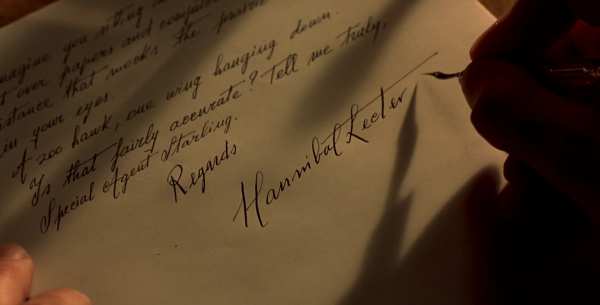 magine you sitting in
t over papers and computer
istance that mocks the
in your eyes.
A zoo hawk, one wing hanging down.
Is that fairly accurate? Tell me truly,
Special Agent Starling.
Regards
Hannibal Lecter